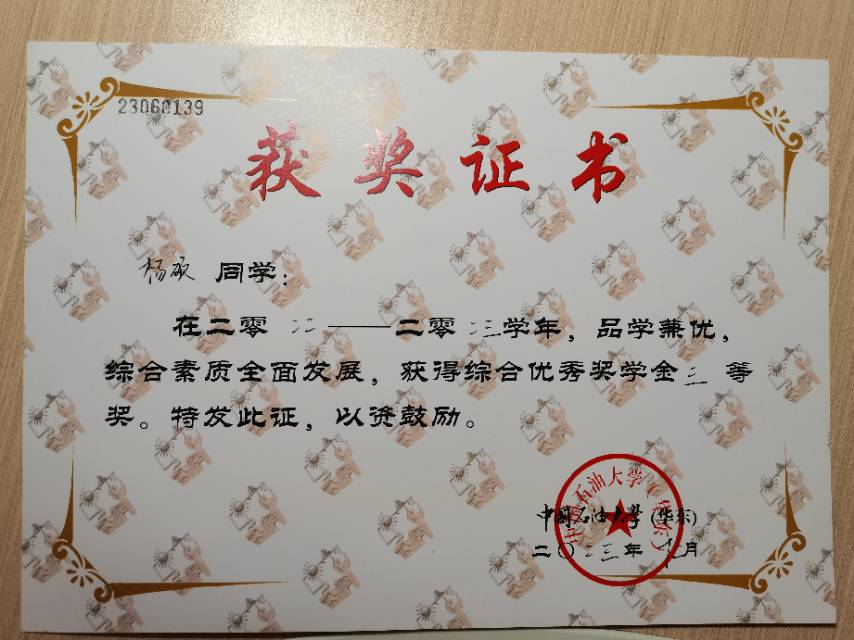 23068139
获奖证书
杨硕 同学：
在二零二二——二零二三学年，品学兼优，
综合素质全面发展，获得综合优秀奖学金三等
奖。特发此证，以资鼓励。
中国石油大学(华东)
中国石油大学(华东)
二〇二三年 月